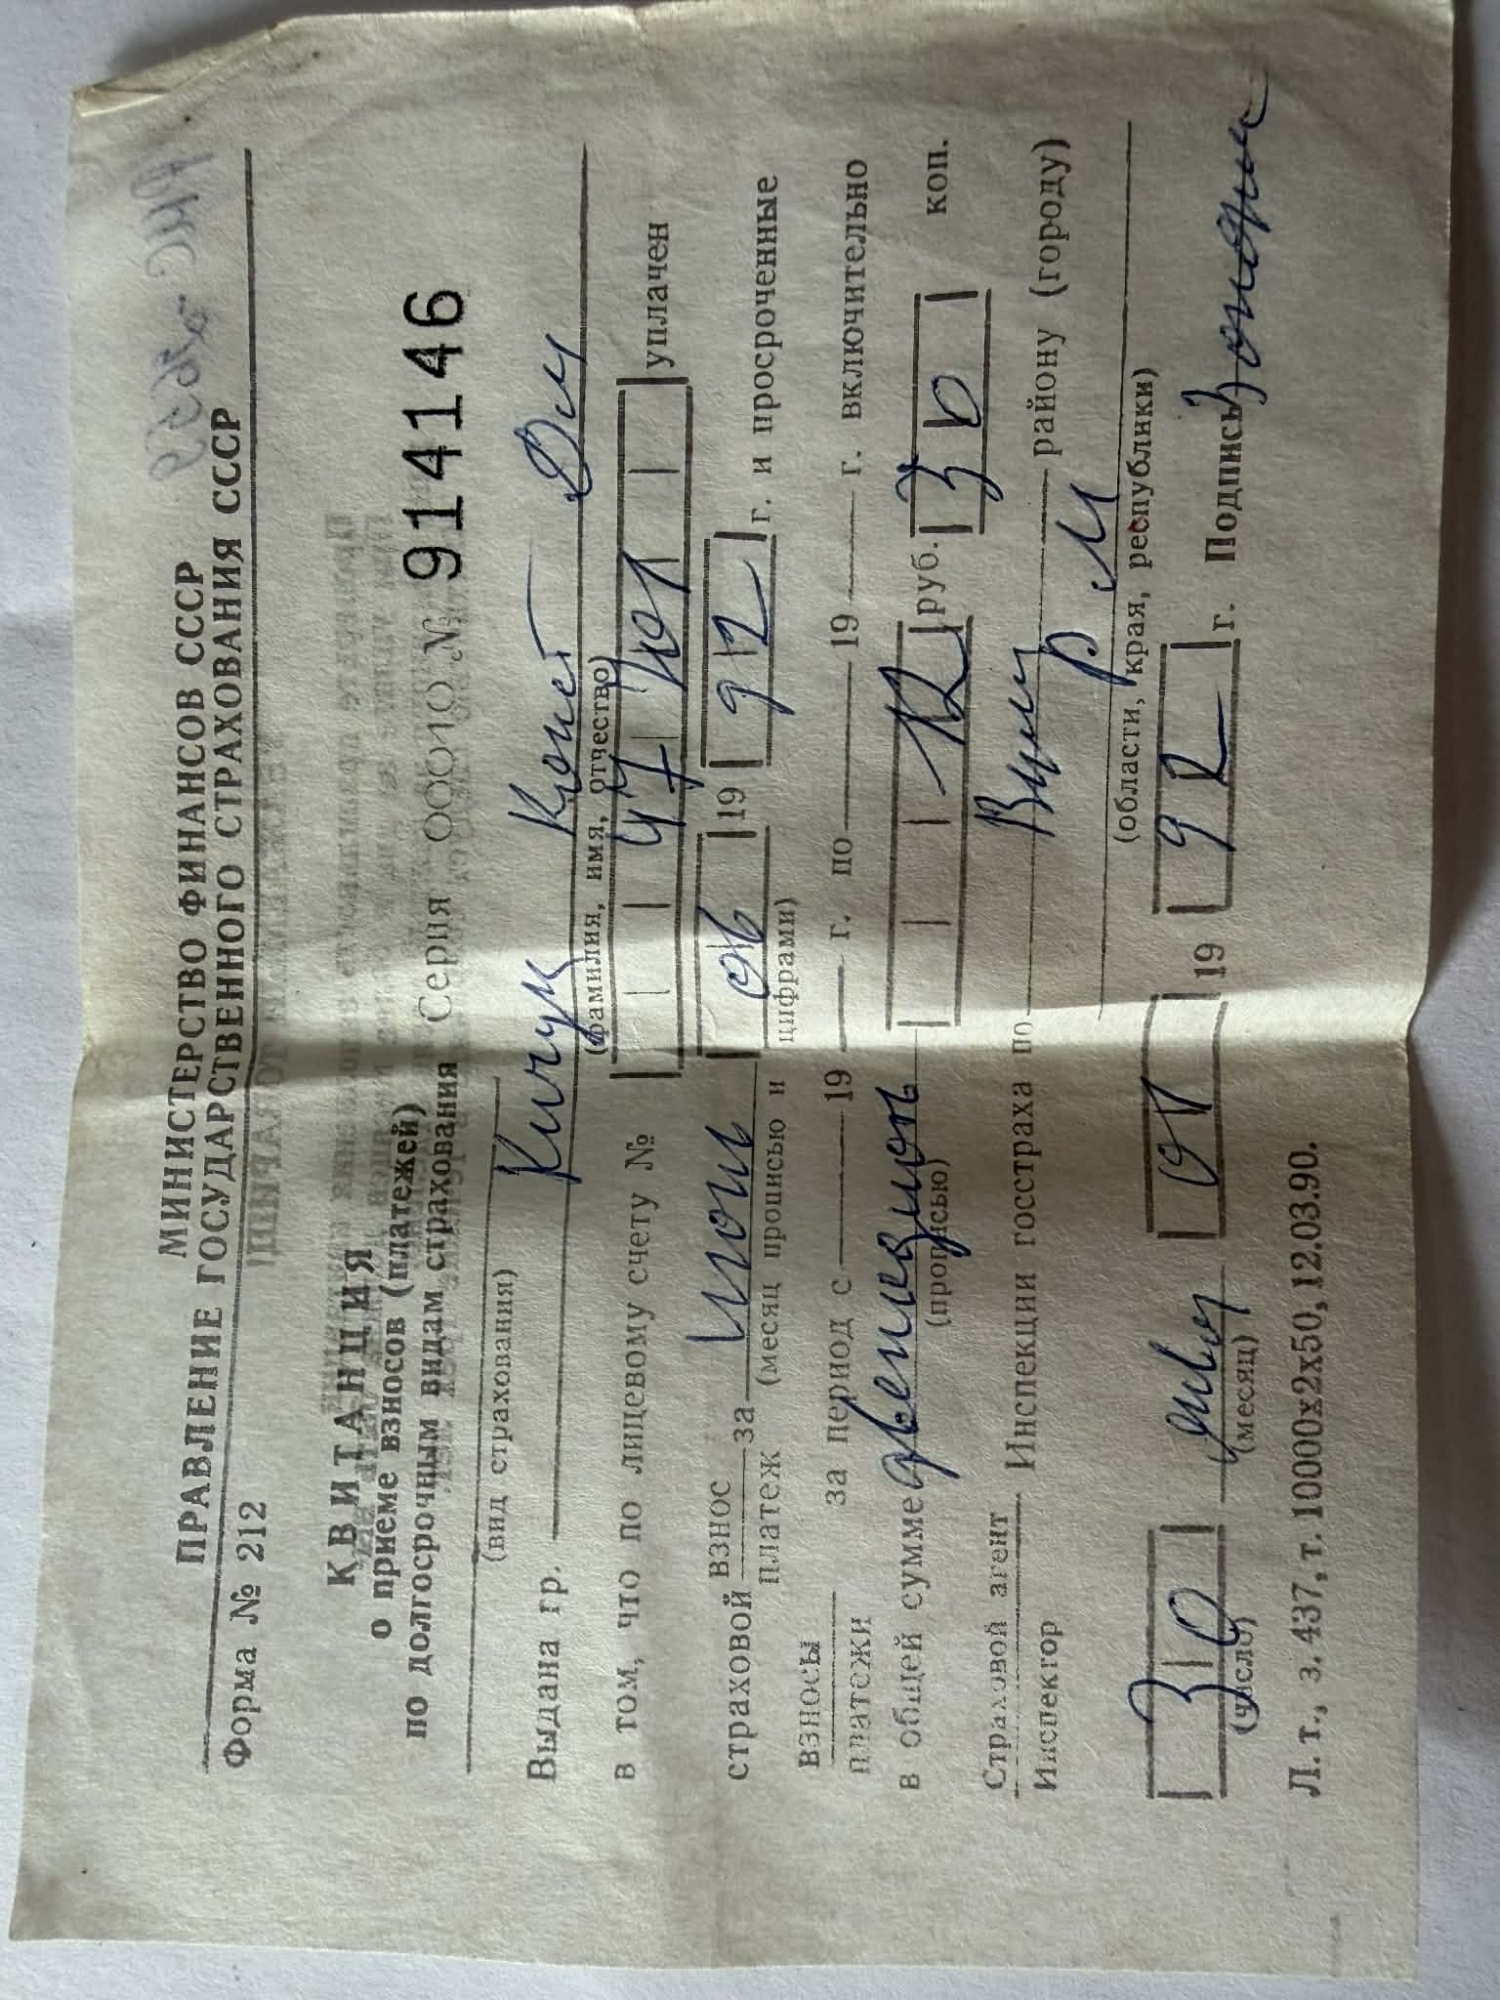 МИНИСТЕРСТВО ФИНАНСОВ СССР
ПРАВЛЕНИЕ ГОСУДАРСТВЕННОГО СТРАХОВАНИЯ СССР
Форма № 212
КВИТАНЦИЯ
о приеме взносов (платежей)
по долгосрочным видам страхования Серия 00010 № 914146
(вид страхования)
Выдана гр. Кичук Конст Дм
(фамилия, имя, отчество)
в том, что по лицевому счету № 47 уплачен
страховой взнос за июнь 06 19 92 г. и просроченные
платеж (месяц прописью и цифрами)
взносы за период с 19 г. по 19 г. включительно
платежи
в общей сумме двенадцать 12 руб. 30 коп.
(прописью)
Страховой агент Инспекции госстраха по району (городу)
Инспектор
(области, края, республики)
30 январ 01 19 92 г. Подпись
(число) (месяц)
Л. т., з. 437, т. 10000х2х50, 12.03.90.